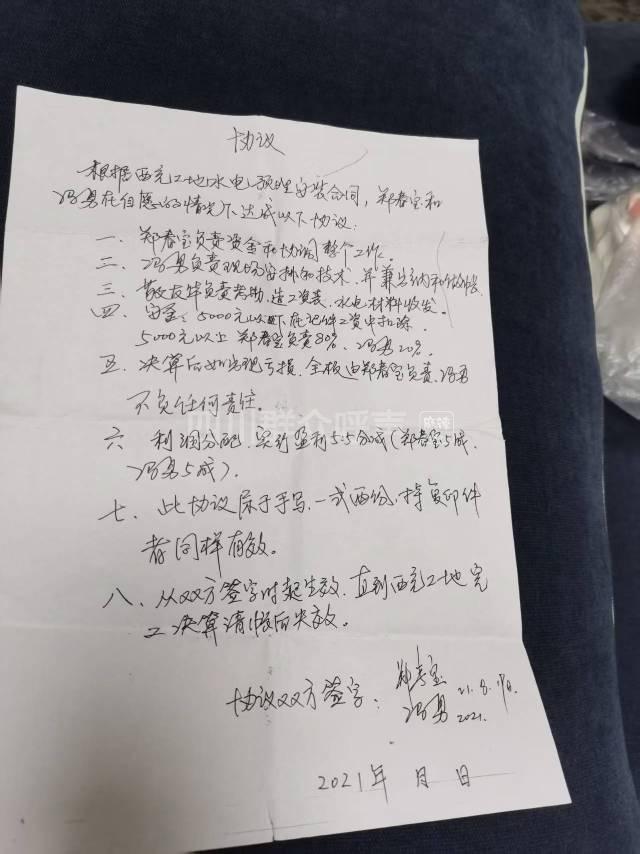 协议
根据西充工地水电预埋安装合同,郑春宝和
冯勇在自愿的情况下达成以下协议:
一、郑春宝负责资金和协调整个工作。
二、冯勇负责现场安排和技术,并兼室内和做帐
三、敬友华负责考勤、造工资表、水电材料收发。
四、安全:5000元以下在记件工资中扣除,
5000元以上郑春宝负责80%、冯勇20%。
五、决算后如出现亏损,全权由郑春宝负责,冯勇
不负任何责任。
六、利润分配,实行盈利5:5分成(郑春宝5成,
冯勇5成)。
七、此协议属于手写,一式两份,持复印件
者同样有效。
八、从双方签字时起生效,直到西充工地完
工决算清帐后失效。
协议双方签字:郑春宝 21.8.
冯勇 2021.
2021年 月 日
四川群众呼声